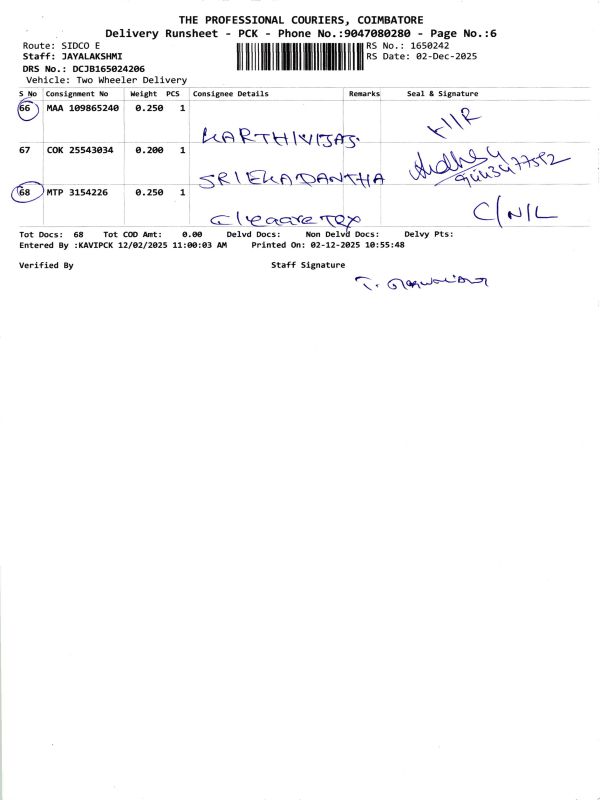 THE PROFESSIONAL COURIERS, COIMBATORE
Delivery Runsheet - PCK - Phone No.:9047080280 - Page No.:6
Route: SIDCO E RS No.: 1650242
Staff: JAYALAKSHMI RS Date: 02-Dec-2025
DRS No.: DCJB165024206
Vehicle: Two Wheeler Delivery
S_No Consignment No Weight PCS Consignee Details Remarks Seal & Signature
66 MAA 109865240 0.250 1
KARTHIVIJAS.
67 COK 25543034 0.200 1
SRIEKADANTHA
68 MTP 3154226 0.250 1 C/N/L
Tot Docs: 68 Tot COD Amt: 0.00 Delvd Docs: Non Delvd Docs: Delvy Pts:
Entered By :KAVIPCK 12/02/2025 11:00:03 AM Printed On: 02-12-2025 10:55:48
Verified By Staff Signature